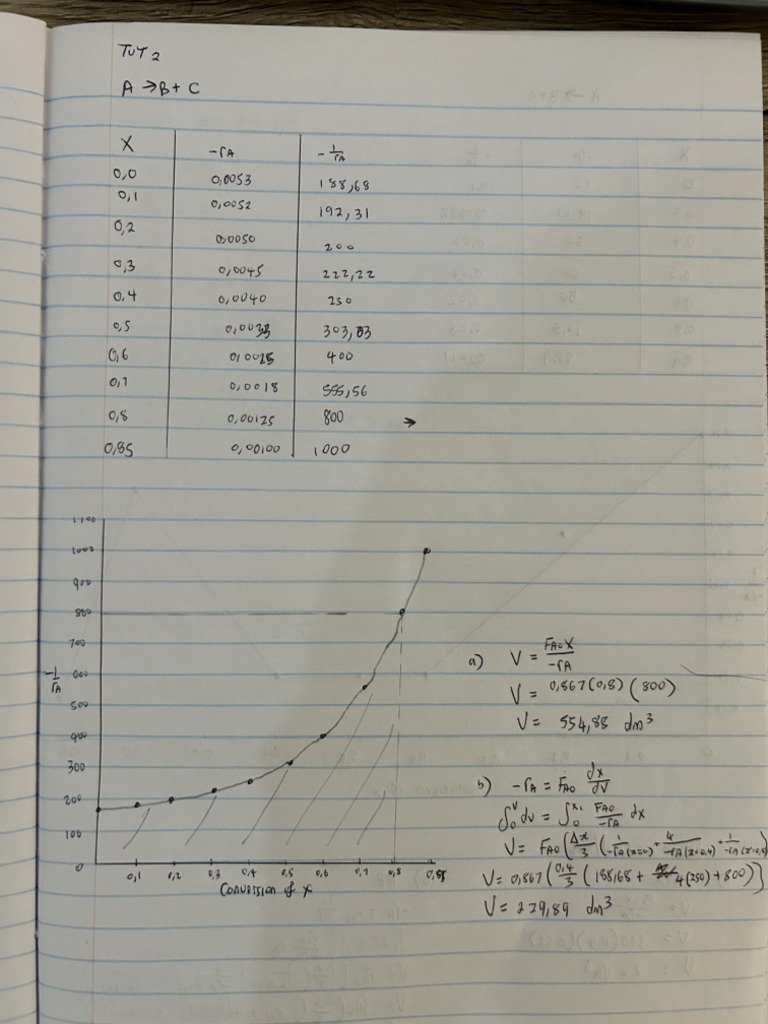 TUT 2
A → B + C
X | -rA | -1/rA
0,0 | 0,0053 | 188,68
0,1 | 0,0052 | 192,31
0,2 | 0,0050 | 200
0,3 | 0,0045 | 222,22
0,4 | 0,0040 | 250
0,5 | 0,0033 | 303,03
0,6 | 0,0025 | 400
0,7 | 0,0018 | 555,56
0,8 | 0,00125 | 800 →
0,85 | 0,00100 | 1000
1100
1000
900
800
700
600
-1/rA
500
400
300
200
100
0
0,1 0,2 0,3 0,4 0,5 0,6 0,7 0,8 0,85
Conversion of X
a) V = FA0 X / -rA
V = 0,867 (0,8) (800)
V = 554,88 dm³
b) -rA = FA0 dx/dV
∫₀ⱽ dv = ∫₀ˣ¹ FA0/-rA dx
V = FA0 (Δx/3 (1/-rA(x=0) + 4/-rA(x=0,4) + 1/-rA(x=0,8)
V = 0,867 (0,4/3 (188,68 + 4(250) + 800))
V = 229,89 dm³